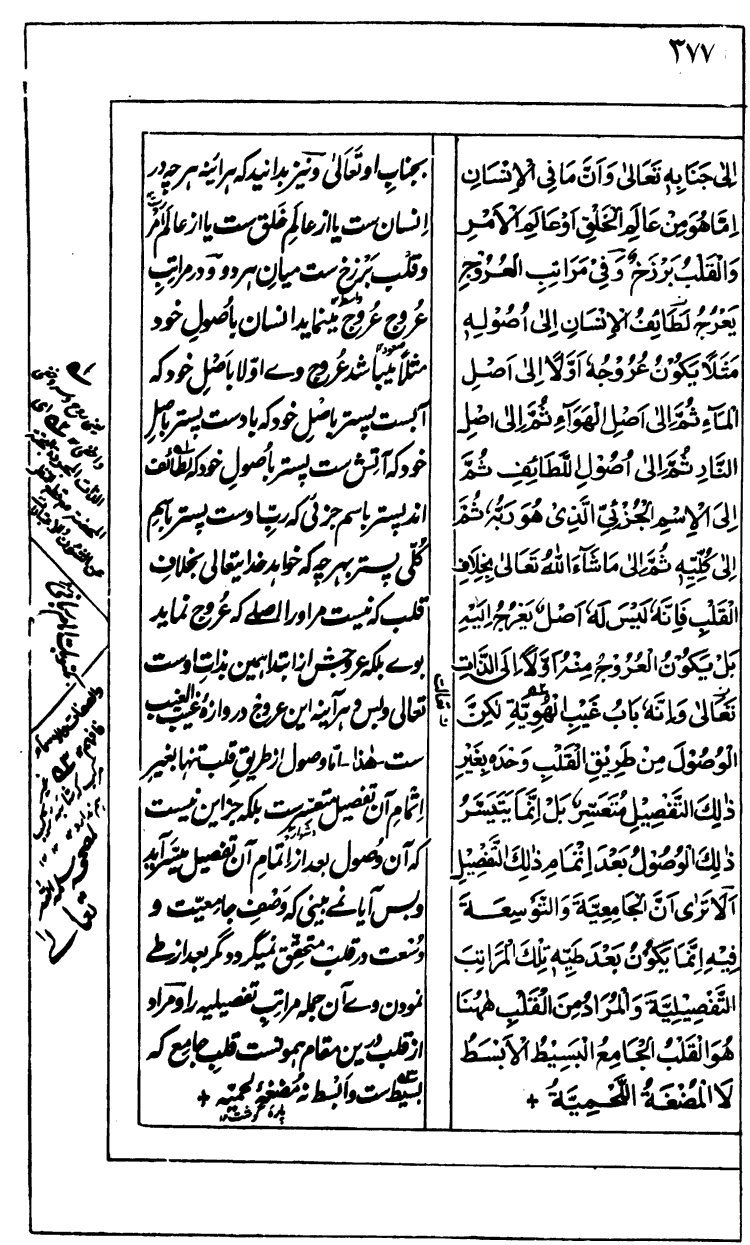 ٣٧٧
اِلٰى جَنَابِهٖ تَعَالٰى وَاَنَّ مَا فِى الْاِنْسَانِ
اِمَّا هُوَ مِنْ عَالَمِ الْخَلْقِ اَوْ عَالَمِ الْاَمْرِ
وَالْقَلْبُ بَرْزَخٌ وَفِىْ مَرَاتِبِ الْعُرُوْجِ
يَعْرُجُ لَطَائِفُ الْاِنْسَانِ اِلٰى اُصُوْلِهٖ
مَثَلًا يَكُوْنُ عُرُوْجُهٗ اَوَّلًا اِلٰى اَصْلِ
الْمَآءِ ثُمَّ اِلٰى اَصْلِ الْهَوَآءِ ثُمَّ اِلٰى اَصْلِ
النَّارِ ثُمَّ اِلٰى اُصُوْلِ اللَّطَائِفِ ثُمَّ
اِلَى الْاِسْمِ الْجُزْئِيِّ الَّذِىْ هُوَ رَبُّهٗ ثُمَّ
اِلٰى كُلِّيِّهٖ ثُمَّ اِلٰى مَا شَآءَ اللهُ تَعَالٰى بِخِلَافِ
الْقَلْبِ فَاِنَّهٗ لَيْسَ لَهٗ اَصْلٌ يَعْرُجُ اِلَيْهِ
بَلْ يَكُوْنُ الْعُرُوْجُ مِنْهُ اَوَّلًا اِلَى الذَّاتِ
تَعَالٰى وَاِنَّهٗ بَابُ غَيْبِ الْهُوِيَّةِ لٰكِنَّ
الْوُصُوْلَ مِنْ طَرِيْقِ الْقَلْبِ وَحْدَهٗ بِغَيْرِ
ذٰلِكَ التَّفْصِيْلِ مُتَعَسِّرٌ بَلْ اِنَّمَا يَتَيَسَّرُ
ذٰلِكَ الْوُصُوْلُ بَعْدَ اِتْمَامِ ذٰلِكَ التَّفْصِيْلِ
اَلَا تَرٰى اَنَّ الْجَامِعِيَّةَ وَالتَّوْسِعَةَ
فِيْهِ اِنَّمَا يَكُوْنُ بَعْدَ طَيِّهٖ تِلْكَ الْمَرَاتِبَ
التَّفْصِيْلِيَّةَ وَالْمُرَادُ مِنَ الْقَلْبِ هٰهُنَا
هُوَ الْقَلْبُ الْجَامِعُ الْبَسِيْطُ الْاَبْسَطُ
لَا الْمُضْغَةُ اللَّحْمِيَّةُ +
بجنابِ او تَعَالٰى و نیز بدانید که هر آینه هر چه در
اِنسان ست یا از عالمِ خَلق ست یا از عالمِ اَمْر
و قلب بَرْزخ ست میانِ هر دو و در مراتبِ
عُروج عُروج مینماید انسان باُصولِ خود
مثلًا میباشد عُروج وے اولا باَصْلِ خود که
آبست پستر باصلِ خود که بادست پستر باصلِ
خود که آتش ست پستر باُصولِ خود که لطائف
اند پستر باسم جزئی که ربِّ اوست پستر باسمِ
کُلّی پستر بهرچه که خواهد خدایتعالی بخلافِ
قلب که نیست مر اورا اصلے که عُروج نماید
بوے بلکه عروجش از ابتدا همین بذاتِ اوست
تعالی و بس و هر آینه این عروج دروازۀ غَیْبُ الغَیب
ست هٰذا - امّا وصول از طریقِ قلب تنها بغیرِ
اِتمامِ آن تفصیل متعسّرست بلکه جز این نیست
که آن وصول بعد از اتمامِ آن تفصیل میسّر آید
و بس آیا نمے بینی که وَصْفِ جامعیّت و
وُسْعت در قلب متحقّق نمیگردد مگر بعد از طے
نمودن وے آن جمله مراتبِ تفصیلیه را و مراد
از قلب درین مقام همونست قلبِ جامع که
بسیط ست و اَبْسط نه مُضْغۀ لحمیّه +
پارۀ گوشت ۱۲
تعالت